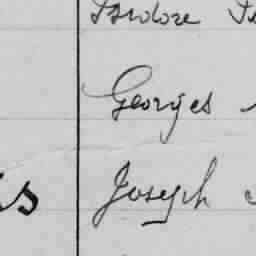 Isidore
Georges
Joseph